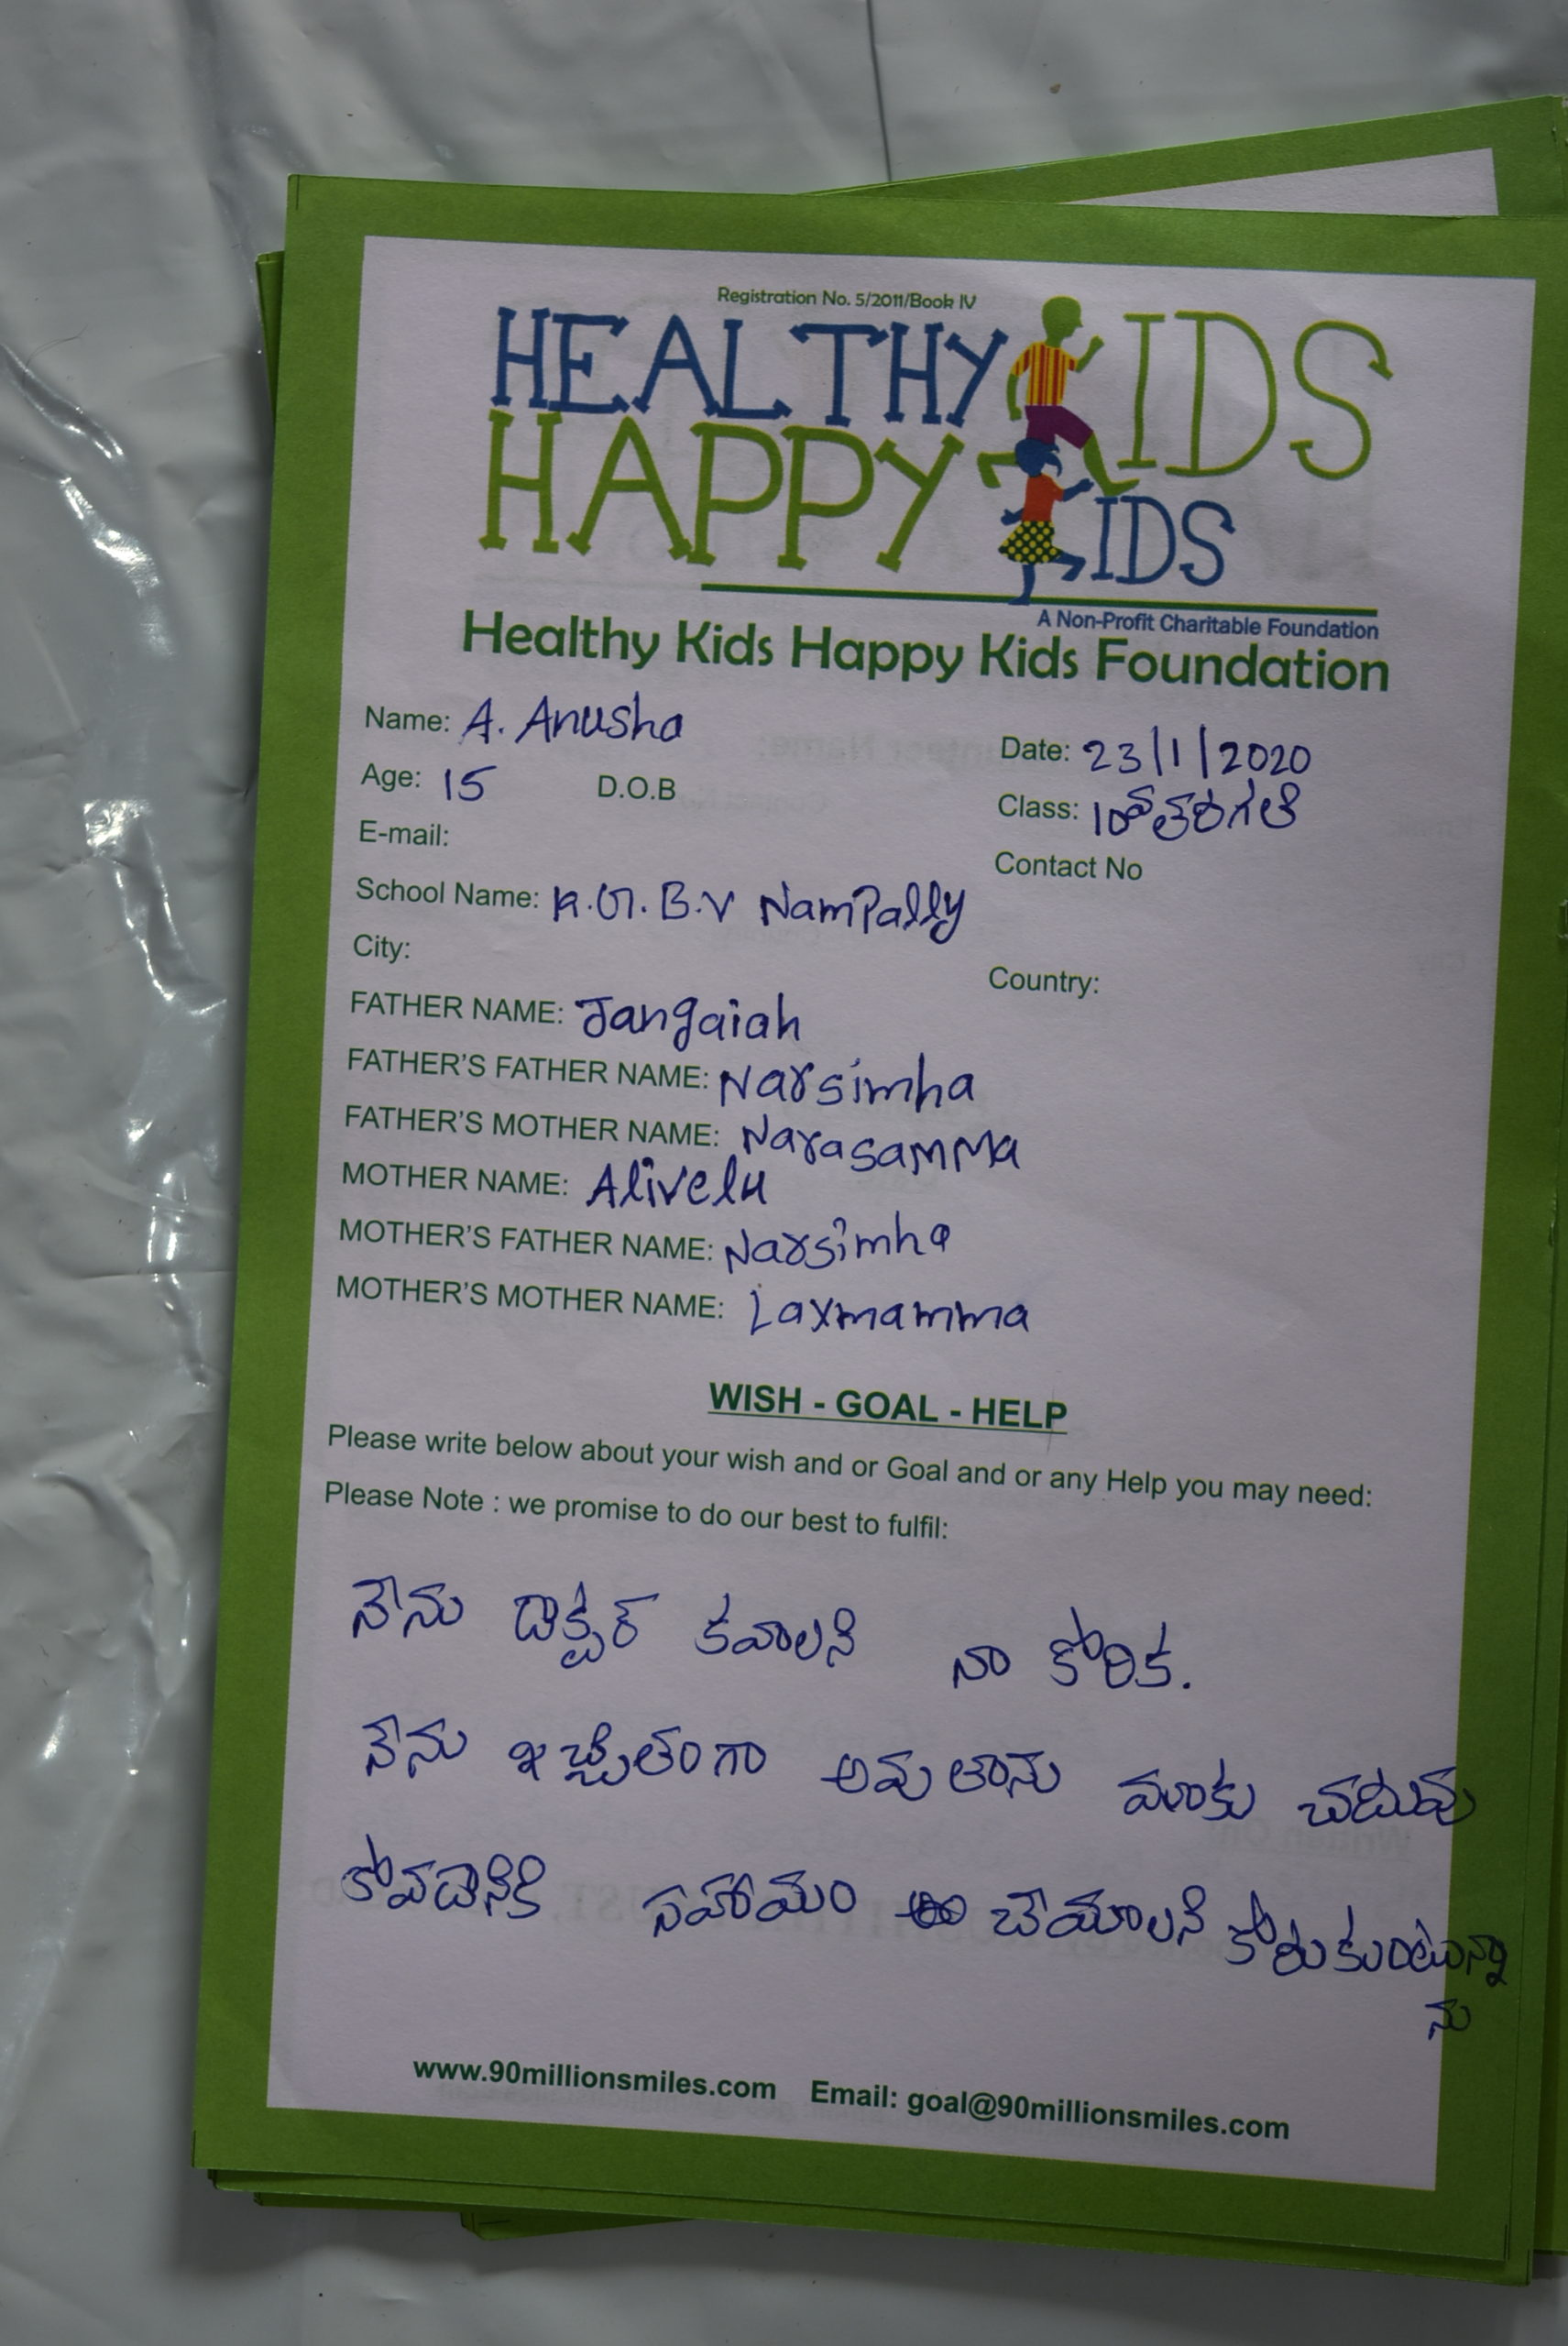 Registration No. 5/2011/Book IV
HEALTHY KIDS
HAPPY KIDS
A Non-Profit Charitable Foundation
Healthy Kids Happy Kids Foundation
Name: A. Anusha
Date: 23/1/2020
Age: 15 D.O.B
Class: 10వ తరగతి
E-mail:
Contact No
School Name: K.G.B.V Nampally
City:
Country:
FATHER NAME: Jangaiah
FATHER'S FATHER NAME: Narsimha
FATHER'S MOTHER NAME: Narasamma
MOTHER NAME: Alivelu
MOTHER'S FATHER NAME: Narsimha
MOTHER'S MOTHER NAME: Laxmamma
WISH - GOAL - HELP
Please write below about your wish and or Goal and or any Help you may need:
Please Note : we promise to do our best to fulfil:
నేను డాక్టర్ కవాలని నా కోరిక.
నేను అవుతాను మాకు చదువు
కోవడానికి సహాయం చేయాలని కోరుకుంటున్నా
ను
www.90millionsmiles.com Email: goal@90millionsmiles.com